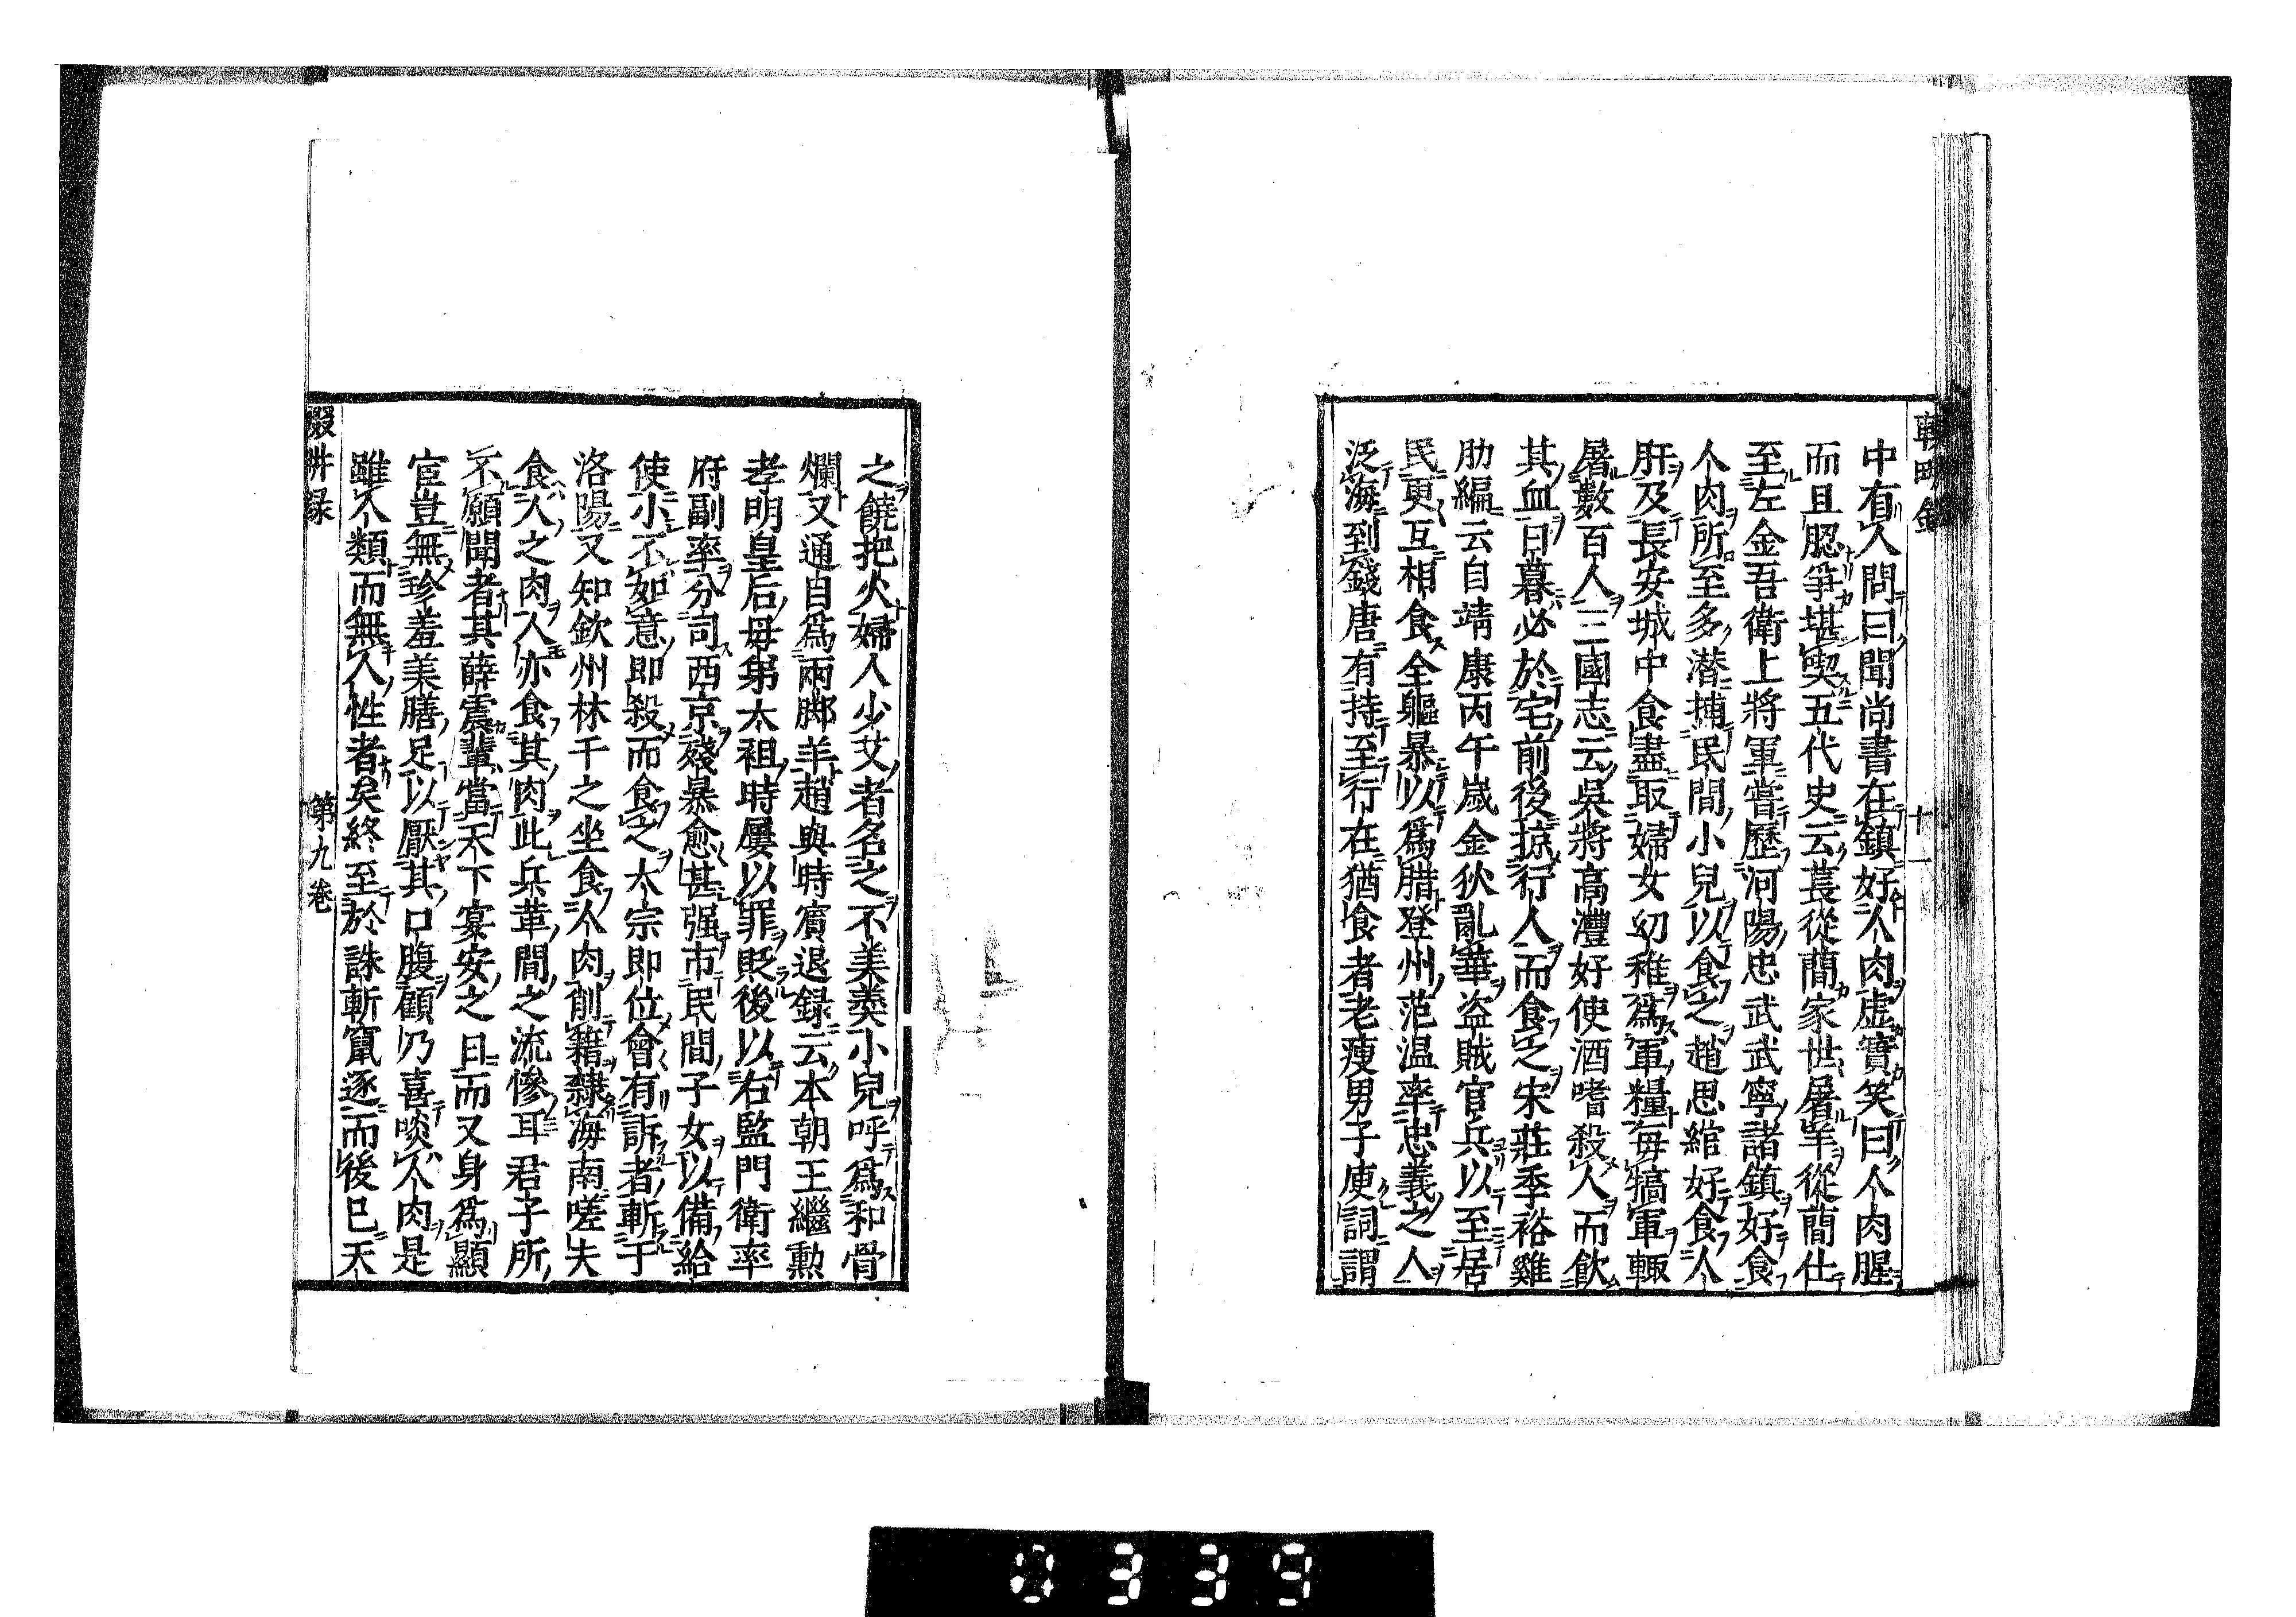 輟耕錄
十一
中有人問曰聞尚書在鎮好人肉虛實笑曰人肉腥
而且腮爭堪喫五代史云萇從蕳家世屠羊從蕳仕
至左金吾衛上將軍嘗歷河陽忠武武寧諸鎮好食
人肉所至多潛捕民間小兒以食之趙思綰好食人
肝及長安城中食盡取婦女幼稚爲軍糧每犒軍輙
屠數百人三國志云吳將高灃好使酒嗜殺人而飲
其血日暮必於宅前後掠行人而食之宋莊季裕雞
肋編云自靖康丙午歲金狄亂華盜賊官兵以至居
民更互相食全軀暴以爲腊登州范温率忠義之人
泛海到錢唐有持至行在猶食者老瘦男子庾詞謂
之饒把火婦人少艾者名之不美羹小兒呼爲和骨
爛又通自爲兩脚羊趙與時賓退録云本朝王繼勳
孝明皇后母弟太祖時屢以罪貶後以右監門衛率
府副率分司西京殘暴愈甚强市民間子女以備給
使小不如意即殺而食之太宗即位會有訴者斬于
洛陽又知欽州林千之坐食人肉削籍隸海南嗟夫
食人之肉人亦食其肉此兵革間之流慘耳君子所
不願聞者其薛震輩當天下宴安之且而又身爲顯
宦豈無珍羞美膳足以厭其口腹顧乃喜啖人肉是
雖人類而無人性者矣終至於誅斬竄逐而後已天
輟畊録
第九卷
0339